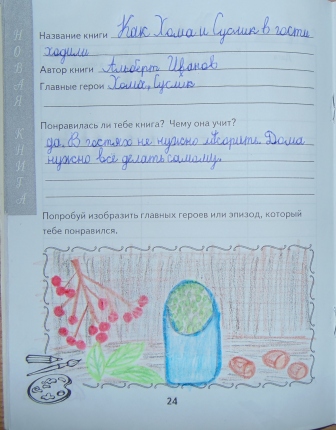 НОВАЯ КНИГА
Название книги Как Хома и Суслик в гости
ходили
Автор книги Альберт Иванов
Главные герои Хома, Суслик
Понравилась ли тебе книга? Чему она учит?
да. В гостях не нужно мсорить. Дома
нужно всё делать самому.
Попробуй изобразить главных героев или эпизод, который
тебе понравился.
24